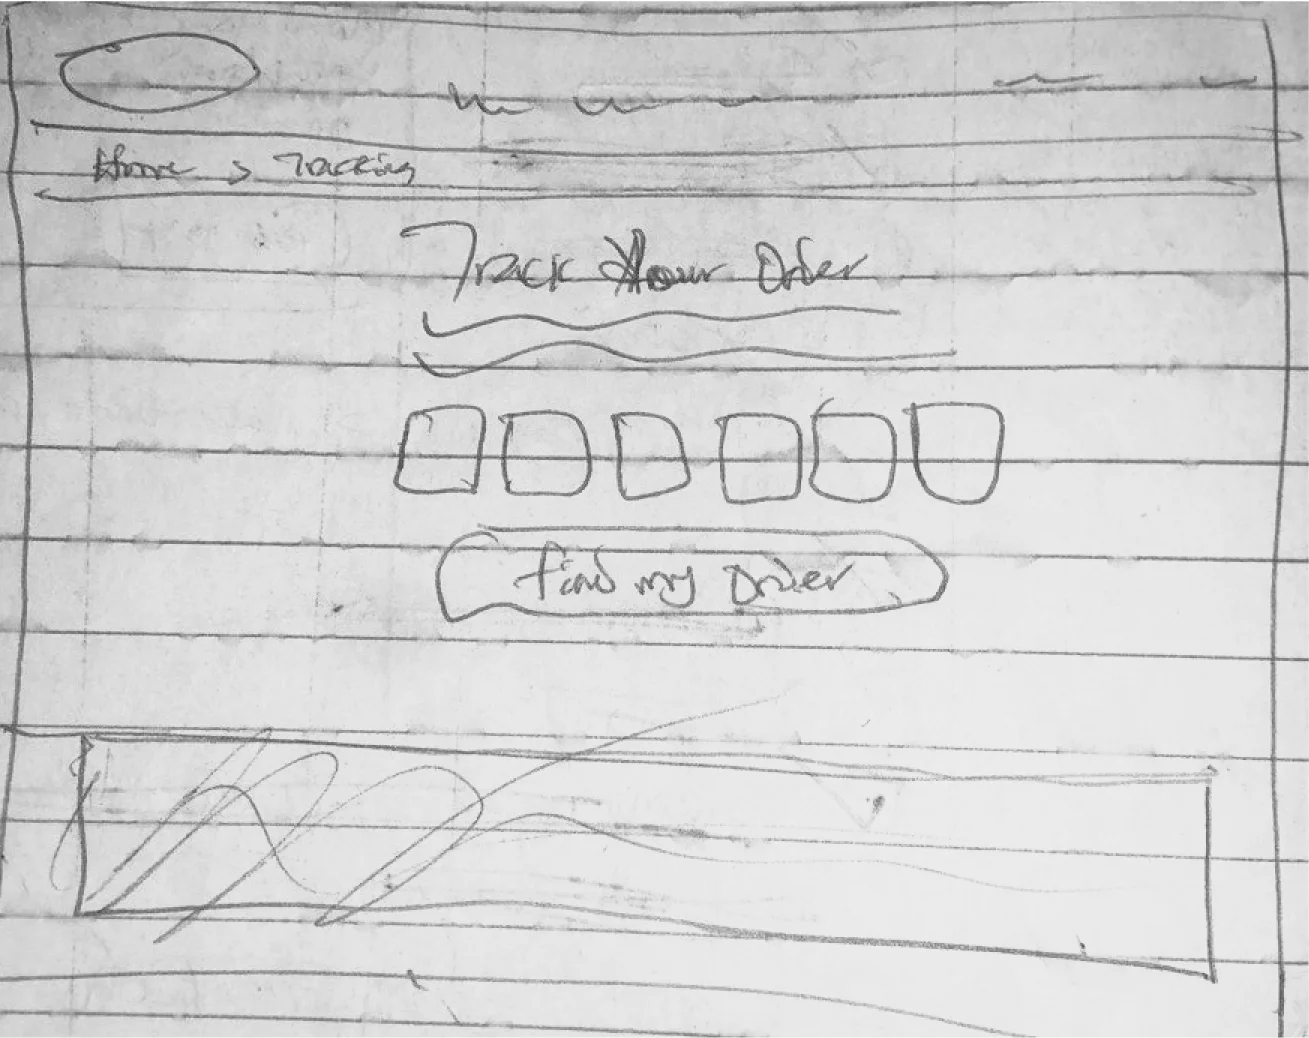 Home > Tracking
Track Your Order
find my order